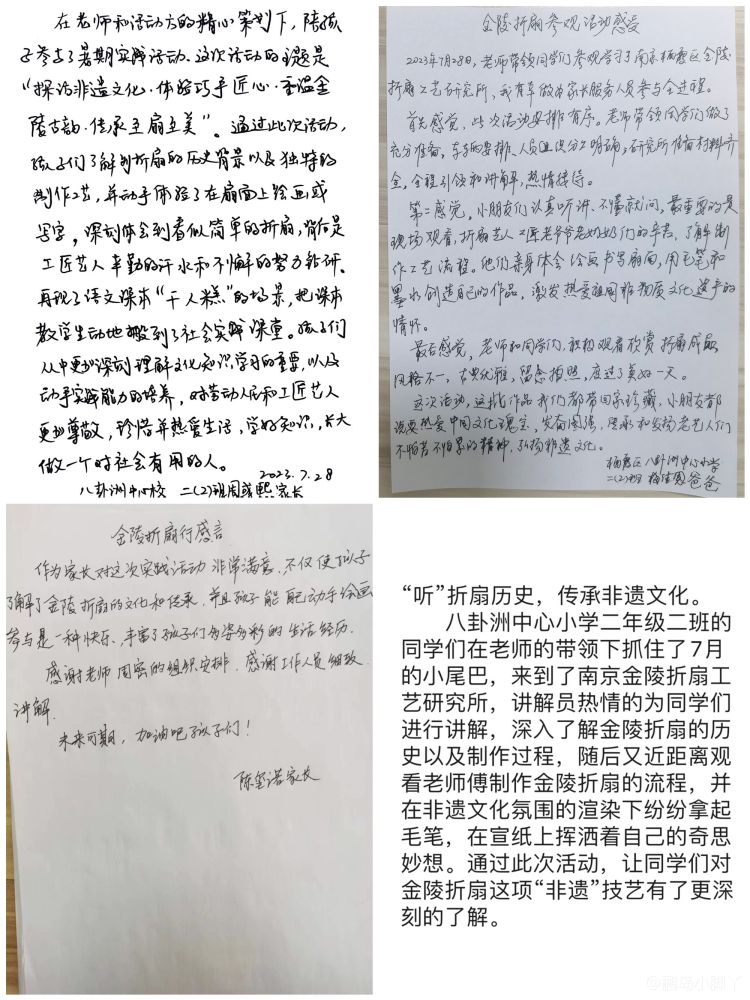 在老师和活动方的精心策划下，陪孩
子参与了暑期实践活动。这次活动的课题是
“探访非遗文化·体验巧手匠心·重温金
陵古韵·传承至扇至美”。通过此次活动，
孩子们了解到折扇的历史背景以及独特的
制作工艺，并动手体验了在扇面上绘画或
写字，深刻体会到看似简单的折扇，背后是
工匠艺人辛勤的汗水和不懈的努力钻研。
再现了语文课本“千人糕”的场景，把课本
教学生动地搬到了社会实践课堂。孩子们
从中更加深刻理解文化知识学习的重要，以及
动手实践能力的培养，对劳动人民和工匠艺人
更加尊敬，珍惜并热爱生活，学好知识，长大
做一个对社会有用的人。
2023.7.28
八卦洲中心校 二(2)班周彧熙家长
金陵折扇参观活动感受
2023年7月28日，老师带领同学们参观学习了南京栖霞区金陵
折扇工艺研究所，我有幸做为家长服务人员参与全过程。
首先感觉，此次活动安排有序。老师带领同学们做了
充分准备，车子安排、人员组织分工明确；研究所准备材料齐
全，全程引领和讲解，热情接待。
第二感觉，小朋友们认真听讲、不懂就问，最重要的是
现场观看，折扇艺人工匠老爷爷老奶奶们的辛苦，了解制
作工艺流程。他们亲身体会绘画书写扇面，用毛笔和
墨水创造自己的作品，激发热爱祖国非物质文化遗产的
情怀。
最后感觉，老师和同学们，积极观看欣赏折扇成品，
风格不一，古典优雅，留念拍照，度过了美好一天。
这次活动，这批作品我们都带回家珍藏，小朋友都
说要热爱中国文化瑰宝，发奋图强，传承和发扬老艺人们
不怕苦不怕累的精神，弘扬非遗文化。
栖霞区八卦洲中心小学
二(2)班 爸爸
金陵折扇行感言
作为家长对这次实践活动非常满意，不仅使孩子
了解了金陵折扇的文化和传承，并且孩子能配动手绘画
参与是一种快乐、丰富了孩子们多姿多彩的生活经历。
感谢老师周密的组织安排，感谢工作人员细致
讲解。
未来可期，加油吧孩子们！
陈玺诺家长
“听”折扇历史，传承非遗文化。
八卦洲中心小学二年级二班的
同学们在老师的带领下抓住了7月
的小尾巴，来到了南京金陵折扇工
艺研究所，讲解员热情的为同学们
进行讲解，深入了解金陵折扇的历
史以及制作过程，随后又近距离观
看老师傅制作金陵折扇的流程，并
在非遗文化氛围的渲染下纷纷拿起
毛笔，在宣纸上挥洒着自己的奇思
妙想。通过此次活动，让同学们对
金陵折扇这项“非遗”技艺有了更深
刻的了解。